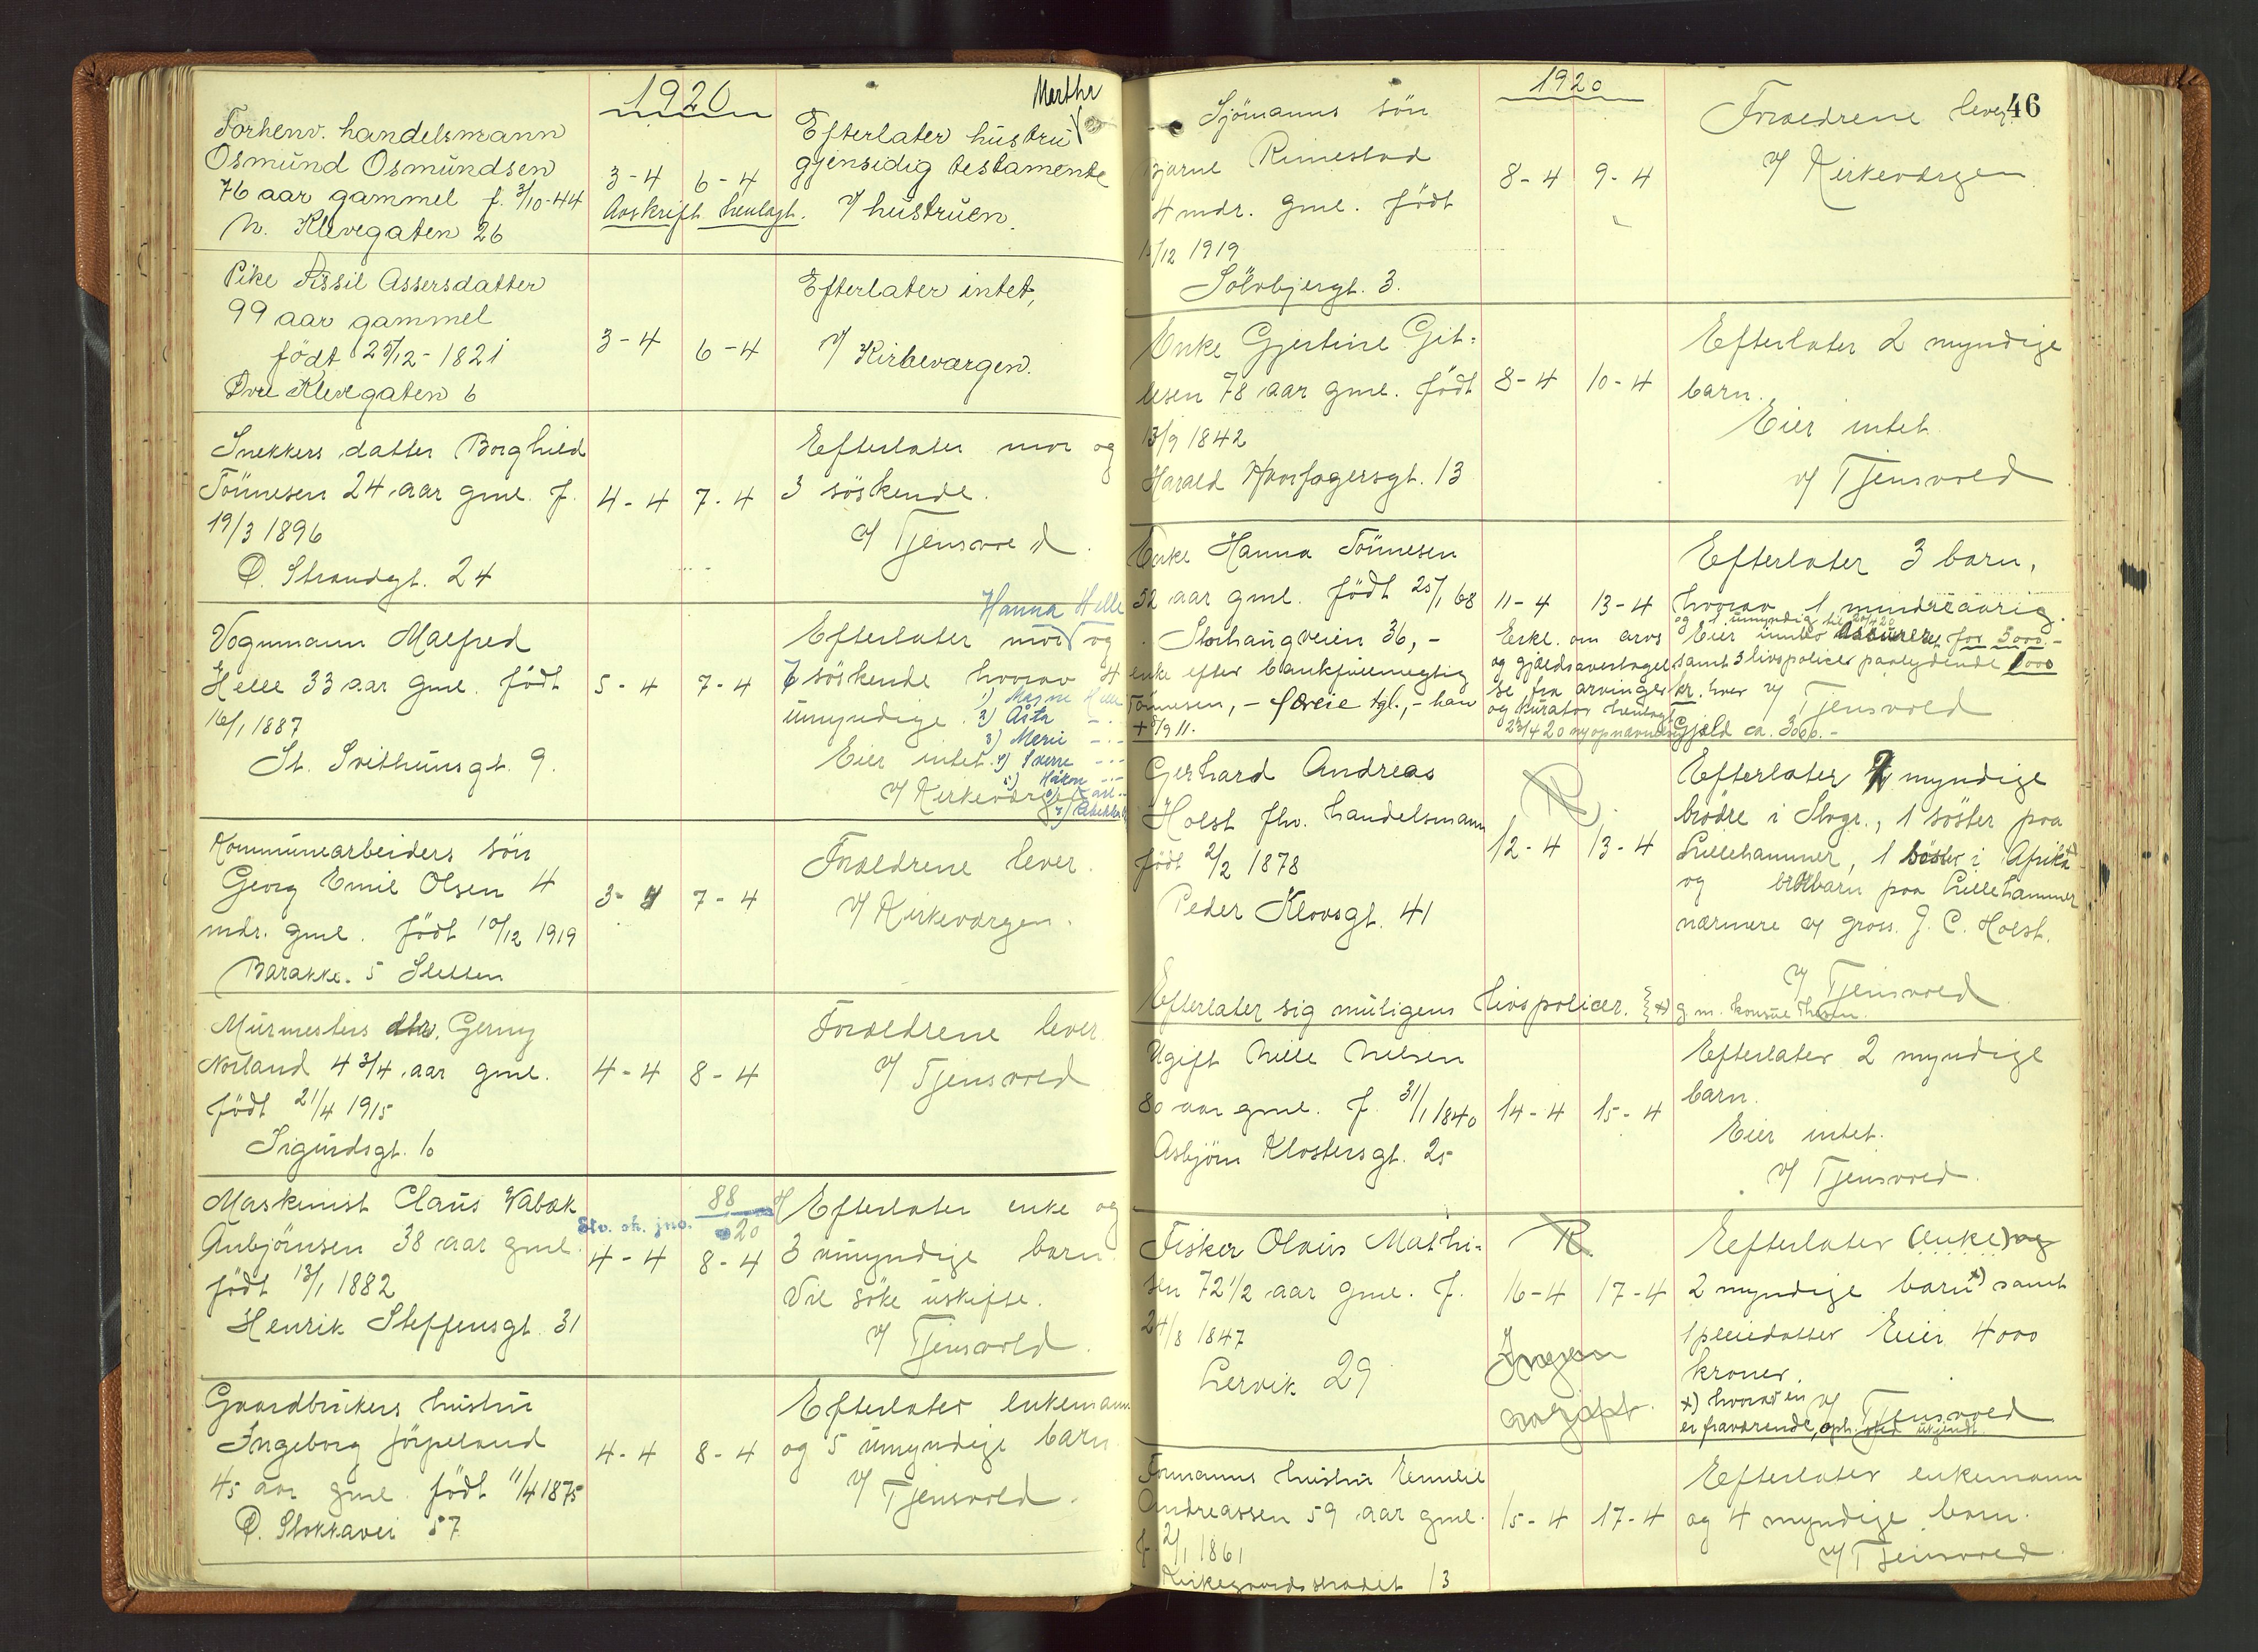 1920
Forhenv. handelsmann
Osmund Osmundsen
76 aar gammel f. 3/10-44
N. Klevegaten 26
3-4
6-4
Avskrift henlagt.
Marthe
Efterlater hustru
gjensidig testamente
v/ hustruen.
Pike Sissil Assersdatter
99 aar gammel
födt 25/12-1821
Övre Klevegaten 6
3-4
6-4
Efterlater intet,
v/ Kirkevergen.
Snekkers datter Borghild
Tönnesen 24 aar gml. f.
19/3 1896
Ö. Strandgt. 24
4-4
7-4
Efterlater mor og
3 söskende.
v/ Tjensvold.
Vognmann Malfred
Helle 33 aar gml. födt
16/1 1887
St. Svithunsgt. 9.
5-4
7-4
Hanna Helle
Efterlater mor og
7 söskende hvorav 4
umyndige.
1) Magne Helle
2) Asta -"-
3) Marie -"-
4) Sverre -"-
5) Håkon -"-
6) Karl -"-
7) Rebekka
Eier intet.
v/ Kirkevergen
Kommunearbeiders sön
Georg Emil Olsen 4
mdr. gml. födt 10/12 1919
Barakke. 5 Sletten
3-4
7-4
Foreldrene lever.
v/ Kirkevergen.
Murmesters dtr. Gerny
Norland 4 3/4 aar gml.
födt 21/4 1915
Sigurdsgt. 6
4-4
8-4
Foreldrene lever
v/ Tjensvold
Maskinist Claus Vabæk
Anbjörnsen 38 aar gml.
födt 13/1 1882
Henrik Steffensgt. 31
Stv. sk. jno. 88/20
4-4
8-4
Efterlater enke og
3 umyndige barn.
Vil söke uskifte.
v/ Tjensvold.
Gaardbrukers hustru
Ingeborg Jörpeland
45 aar gml. födt 11/4 1875
Ö. Stokkavei 57
4-4
8-4
Efterlater enkemann
og 5 umyndige barn
v/ Tjensvold.
46
1920
Sjömanns sön
Bjarne Rimestad
4 mdr. gml. födt
15/12 1919
Sölvbjergt. 3.
8-4
9-4
Foreldrene lever
v/ Kirkevergen
Enke Gjertine Git-
lesen 78 aar gml. födt
13/9 1842
Harald Haarfagersgt. 13
8-4
10-4
Efterlater 2 myndige
barn.
Eier intet.
v/ Tjensvold
Enke Hanna Tönnesen
52 aar gml. födt 25/1 68
Storhaugveien 36,-
enke efter bankfuldmegtig
Tönnesen, - tgl., - han
+ 8/9 11.
11-4
13-4
Erkl. om arvs
og gjeldsovertagel-
se fra arvinger
og kurator henlagt
23/4 20
Efterlater 3 barn,
hvorav 1 mindreaarig.
og 1 umyndig til
Eier innbo assurert for 5000.-
samt 3 livspolicer paalydende 1000
kr. hver v/ Tjensvold
Gjeld ca. 3000.-
Gerhard Andreas
Holst fhv. handelsmann
födt 2/2 1878
Peder Klovsgt. 41
R
12-4
13-4
Efterlater 2 myndige
brödre i Stvgr., 1 söster paa
Lillehammer, 1 söster i Afrika
og brorbarn paa Lillehammer
nærmere v/ gross. J. C. Holst.
v/ Tjensvold
Efterlater sig muligens livspolicer.
x) g.m. konsul
Ugift Nille Nilsen
80 aar gml. f. 31/1 1840
Asbjörn Klostersgt. 25
14-4
15-4
Efterlater 2 myndige
barn.
Eier intet.
v/ Tjensvold.
Fisker Olaus Mathi-
sen 72 1/2 aar gml. f.
24/8 1847
Lervik 29
R
16-4
17-4
Ingen
avgift.
Efterlater (enke) og
2 myndige barn x) samt
1 pleiedatter Eier 4000
kroner.
x) hvorav en
er fraværende, oph. sted ukjendt.
v/ Tjensvold
Formanns hustru Emilie
Andreassen 59 aar gml.
f. 2/1 1861
Kirkegaardsstredet 13
15-4
17-4
Efterlater enkemann
og 4 myndige barn.
v/ Tjensvold.